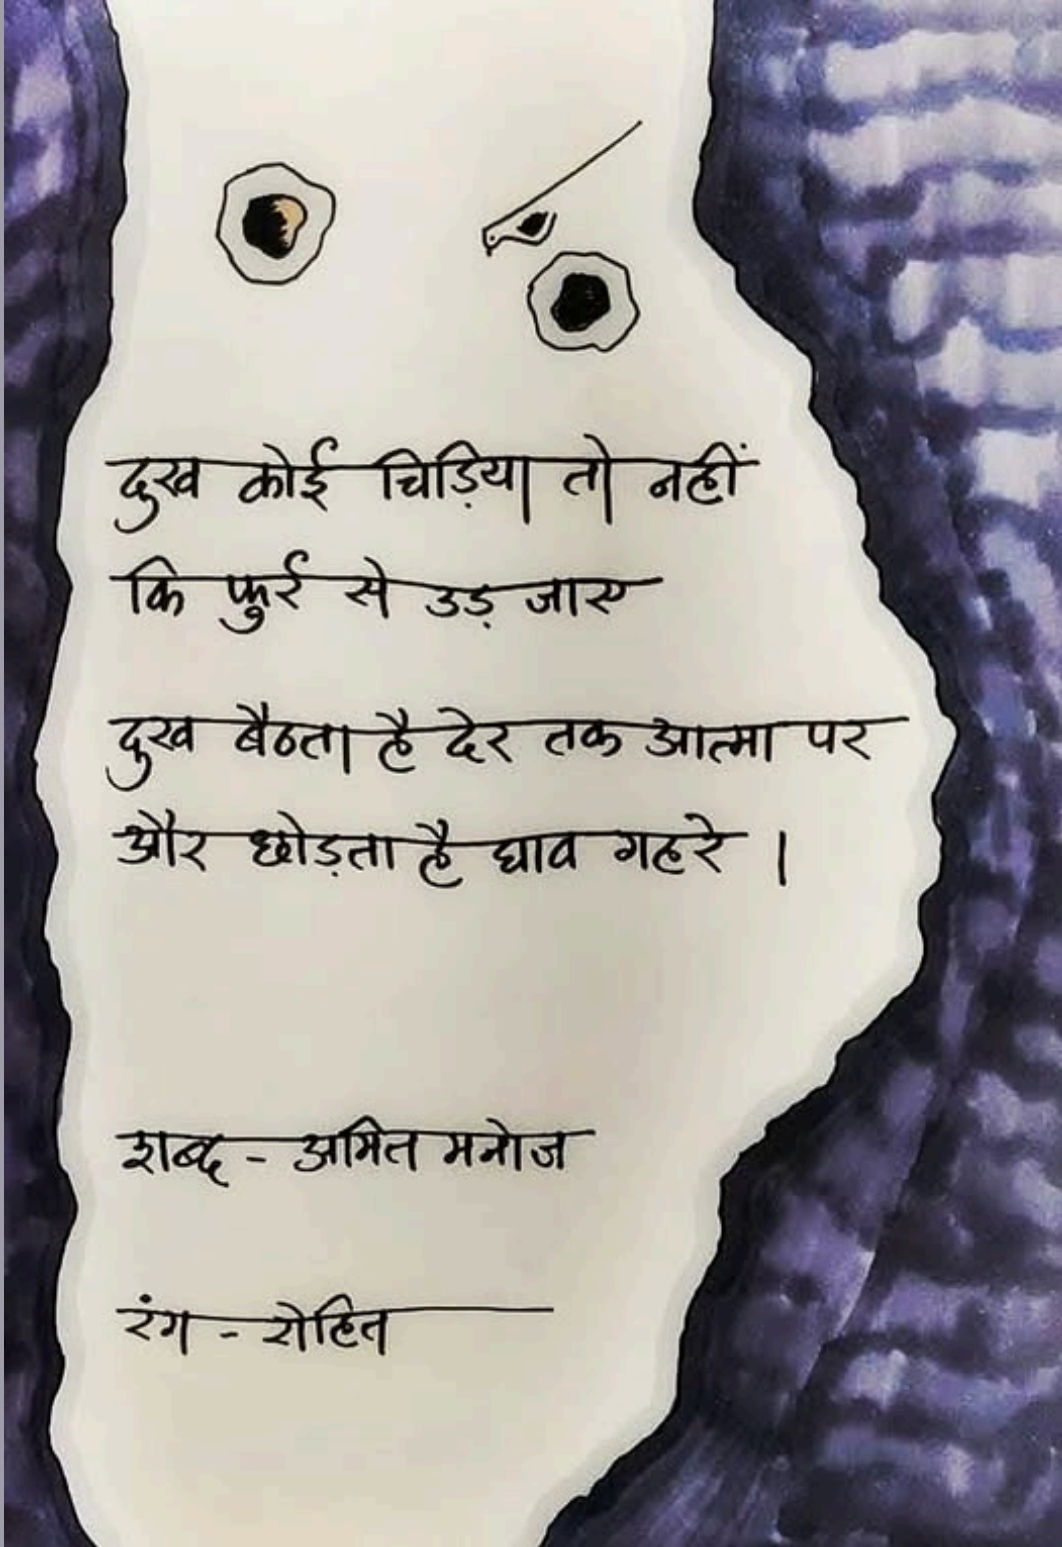 दुख कोई चिड़िया तो नहीं
कि फुर्र से उड़ जाए
दुख बैठता है देर तक आत्मा पर
और छोड़ता है घाव गहरे ।
शब्द - अमित मनोज
रंग - रोहित